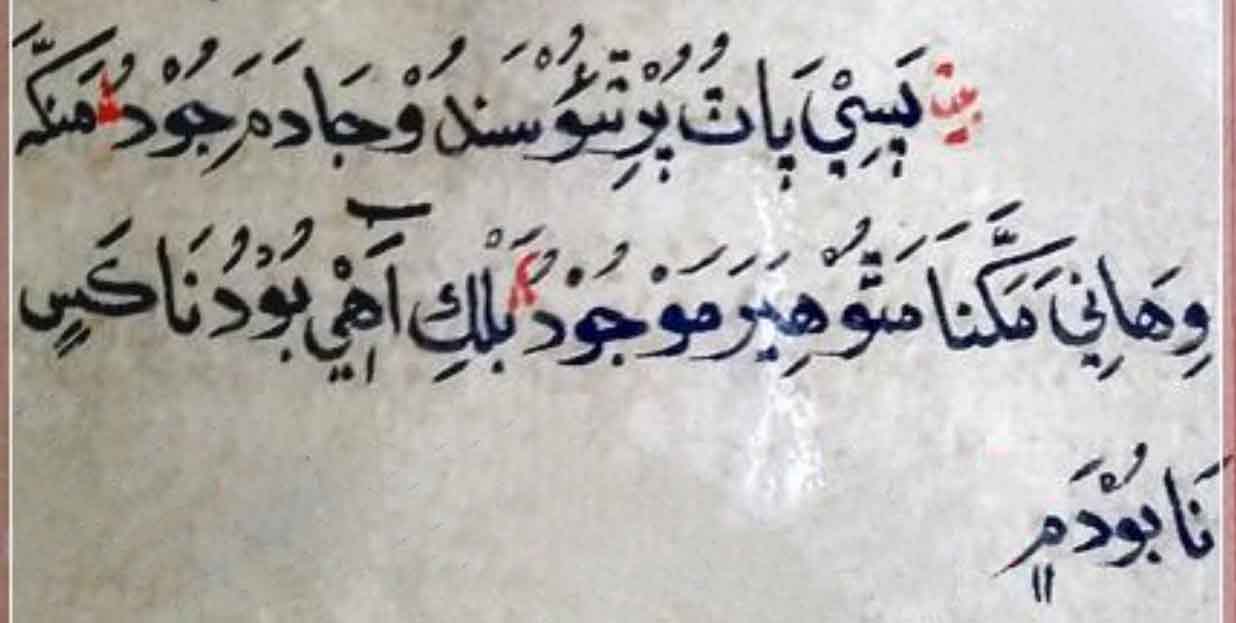 بيت پَسِيْ پَاتُ پُرْتِئوُ سندوْ جَادَمَ جُوْدُ مَنكَّہ
وِهَانِيَ مَكَّنَا مَتُّوْ هِيَرَ مَوْجُوْدُ بَلْكِ آهِيْ بُوْدُ نَا كَسٍ
نَا بُوْدَمٍ